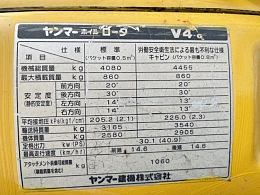 ヤンマーホイルローダー V4-6
項目 仕様 標準 (バケット容量0.5m³) 労働安全衛生法による最も不利な仕様 キャビン (バケット容量0.8m³)
機械総質量 kg 4080 4455
最大積載質量 kg 860 860
安定度 (静的安定度) 前方向 30° 30°
後方向 20° 20°
左方向 30° 30°
右方向 30° 30°
平均接地圧 kPa(kgf/cm²) 205.2
kg 3165 3540
kg 2905
定格出力 kW(PS) 30.1 (40.9)
最高走行速度 (km/h) 14.6 14.6
アタッチメント装着可能質量 1060
ヤンマー建機株式会社